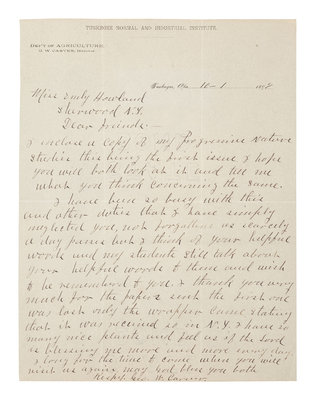 TUSKEGEE NORMAL AND INDUSTRIAL INSTITUTE.
DEP'T OF AGRICULTURE.
G. W. CARVER, Director
Tuskegee, Ala. 10-1 189
Miss Emily Howland
Sherwood N.Y.
Dear Friends:-
I enclose a copy of my Progressive Nature
Studies this being the first issue I hope
you will both look at it and tell me
what you think concerning the same.
I have been so busy with this
and other duties that I have simply
neglected you, not forgotten as scarcely
a day passes but I think of your helpful
words and my students still talk about
your helpful words to them and wish
to be remembered to you. I thank you very
much for the papers sent the first one
was lost only the wrapper came stating
that it was received so in N.Y. I have so
many nice plants and feel as if the Lord
is blessing me more and more every day.
I long for the time to come when you will
visit us again may God bless you both
Respy. Geo. W. Carver.